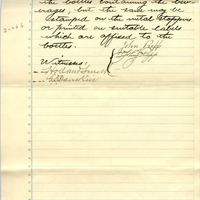 the bottles containing the bev-
erages, but the same may be
stamped on the metal stoppers
or printed on suitable labels
which are affixed to the
bottles.
John
Witnesses: